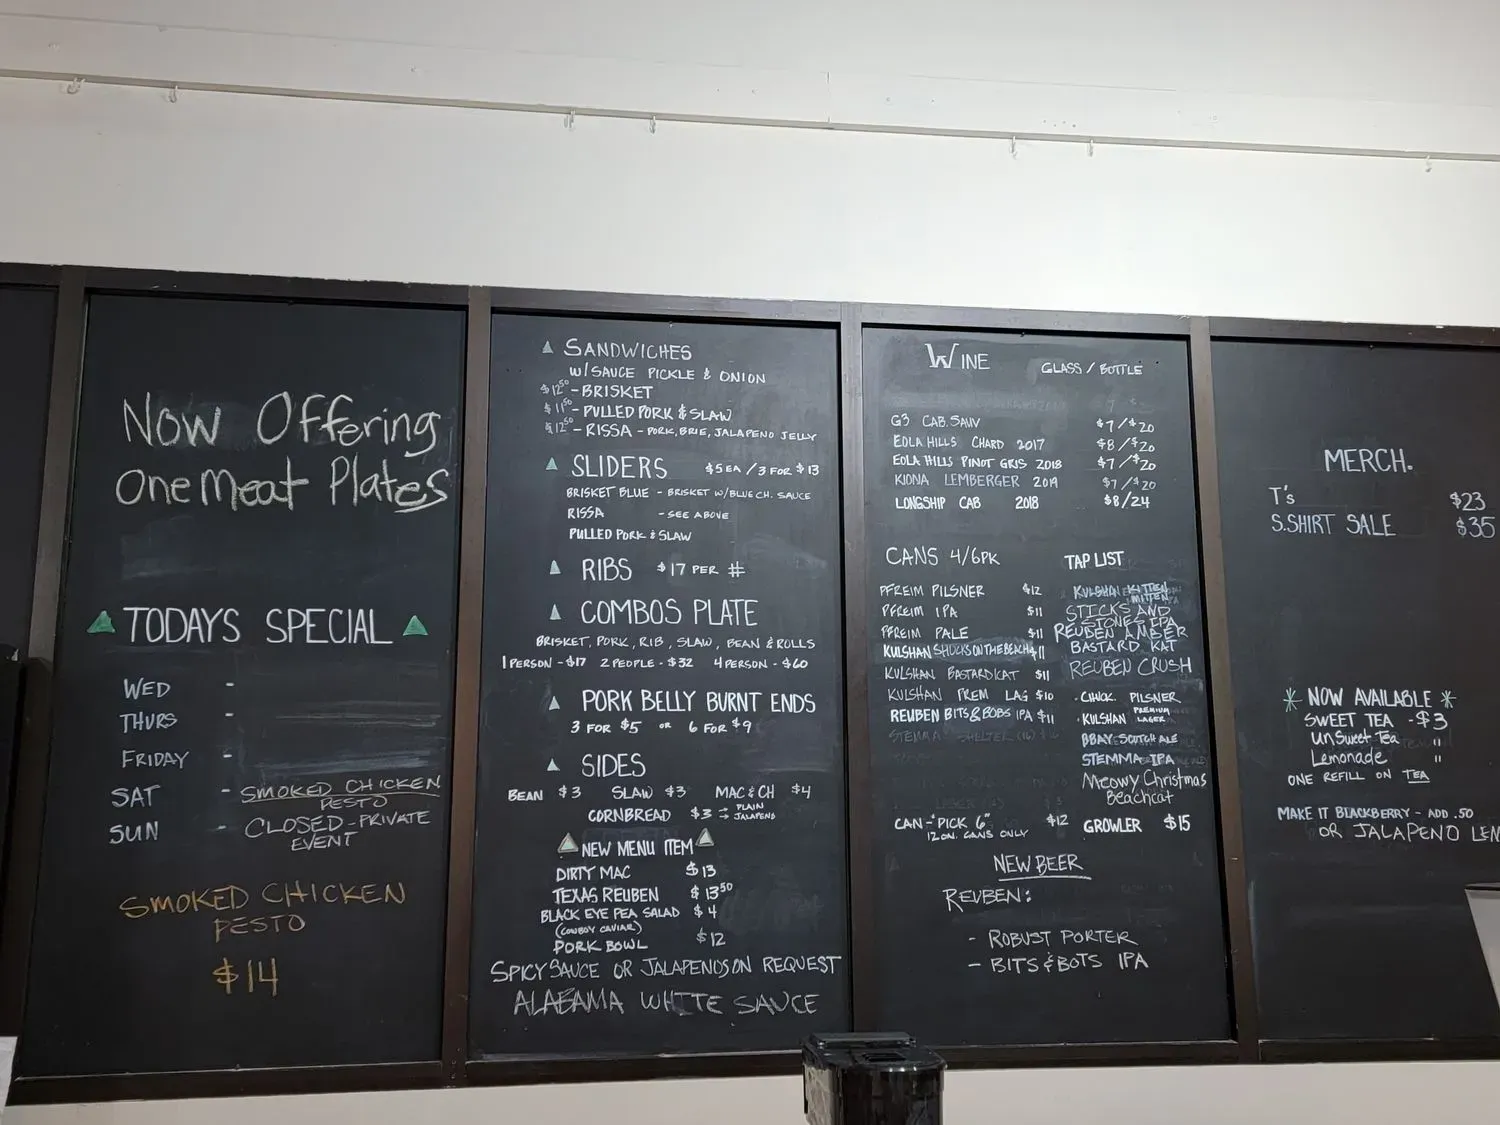 Now Offering
One Meat Plates
TODAYS SPECIAL
WED -
THURS -
FRIDAY -
SAT - SMOKED CHICKEN
PESTO
SUN - CLOSED-PRIVATE
EVENT
SMOKED CHICKEN
PESTO
$14
SANDWICHES
W/SAUCE PICKLE & ONION
$12.50 - BRISKET
$11.50 - PULLED PORK & SLAW
$12.50 - RISSA - PORK, BRIE, JALAPENO JELLY
SLIDERS $5 EA / 3 FOR $13
BRISKET BLUE - BRISKET W/BLUE CH. SAUCE
RISSA - SEE ABOVE
PULLED PORK & SLAW
RIBS $17 PER #
COMBOS PLATE
BRISKET, PORK, RIB, SLAW, BEAN & ROLLS
1 PERSON - $17 2 PEOPLE - $32 4 PERSON - $60
PORK BELLY BURNT ENDS
3 FOR $5 OR 6 FOR $9
SIDES
BEAN $3 SLAW $3 MAC & CH $4
CORNBREAD $3 → PLAIN
JALAPENO
NEW MENU ITEM
DIRTY MAC $13
TEXAS REUBEN $13.50
BLACK EYE PEA SALAD $4
(COWBOY CAVIAR)
PORK BOWL $12
SPICY SAUCE OR JALAPENOS ON REQUEST
ALABAMA WHITE SAUCE
WINE GLASS / BOTTLE
G3 CAB. SAUV $7/$20
EOLA HILLS CHARD 2017 $8/$20
EOLA HILLS PINOT GRIS 2018 $7/$20
KIONA LEMBERGER 2019 $7/$20
LONGSHIP CAB 2018 $8/24
CANS 4/6PK
PFREIM PILSNER $12
PFREIM IPA $11
PFREIM PALE $11
KULSHAN SHUCKS ON THE BEACH $11
KULSHAN BASTARD KAT $11
KULSHAN PREM LAG $10
REUBEN BITS & BOBS IPA $11
CAN - "PICK 6" $12
12 OZ. CANS ONLY
TAP LIST
KULSHAN KITTEN
MITTEN
STICKS AND
STONES IPA
REUBEN AMBER
BASTARD KAT
REUBEN CRUSH
CHUCK. PILSNER
KULSHAN PREMIUM
LAGER
BBAY SCOTCH ALE
STEMMA IPA
Meowy Christmas
Beachcat
GROWLER $15
NEW BEER
REUBEN:
- ROBUST PORTER
- BITS & BOTS IPA
MERCH.
T's $23
S.SHIRT SALE $35
* NOW AVAILABLE *
SWEET TEA - $3
UnSweet Tea "
Lemonade "
ONE REFILL ON TEA
MAKE IT BLACKBERRY - ADD .50
OR JALAPENO LEM